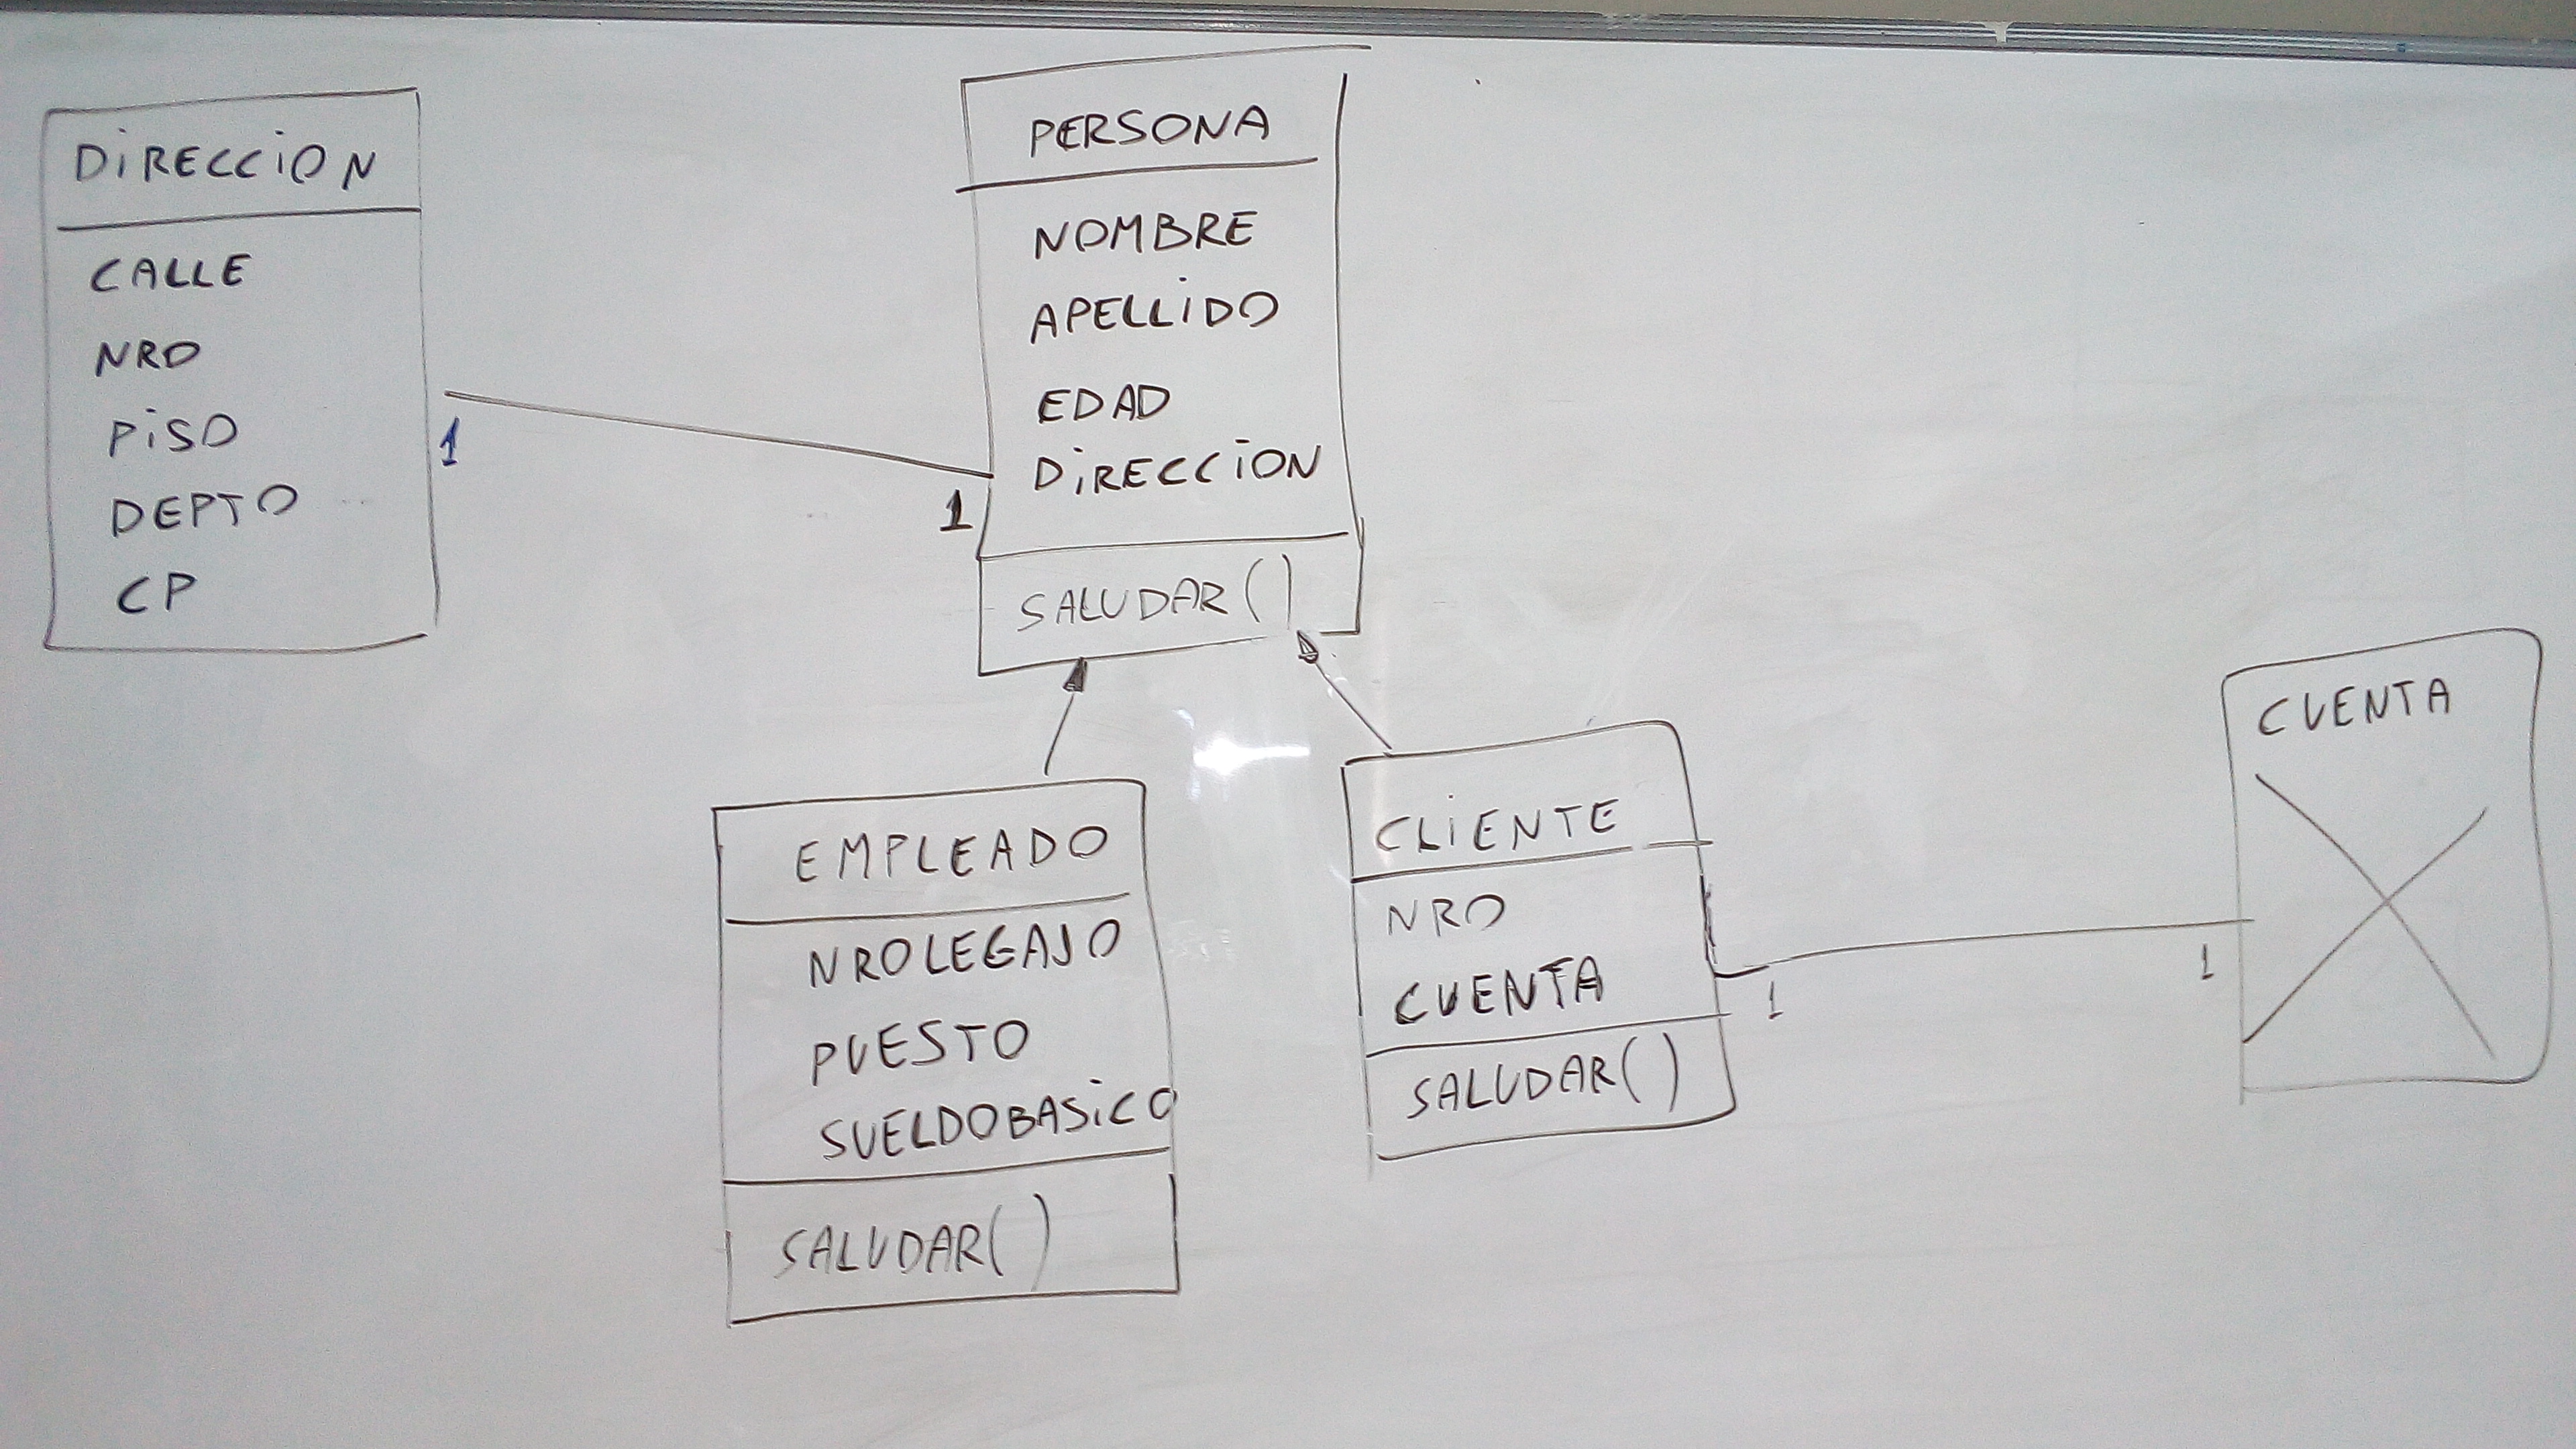 DiRECCiON
CALLE
NRO
PiSO
DEPTO
CP
1
PERSONA
NOMBRE
APELLiDO
EDAD
DiRECCiON
1
SALUDAR()
EMPLEADO
NROLEGAJO
PUESTO
SUELDOBASiCO
SALUDAR()
CLiENTE
NRO
CUENTA
SALUDAR()
1
1
CUENTA